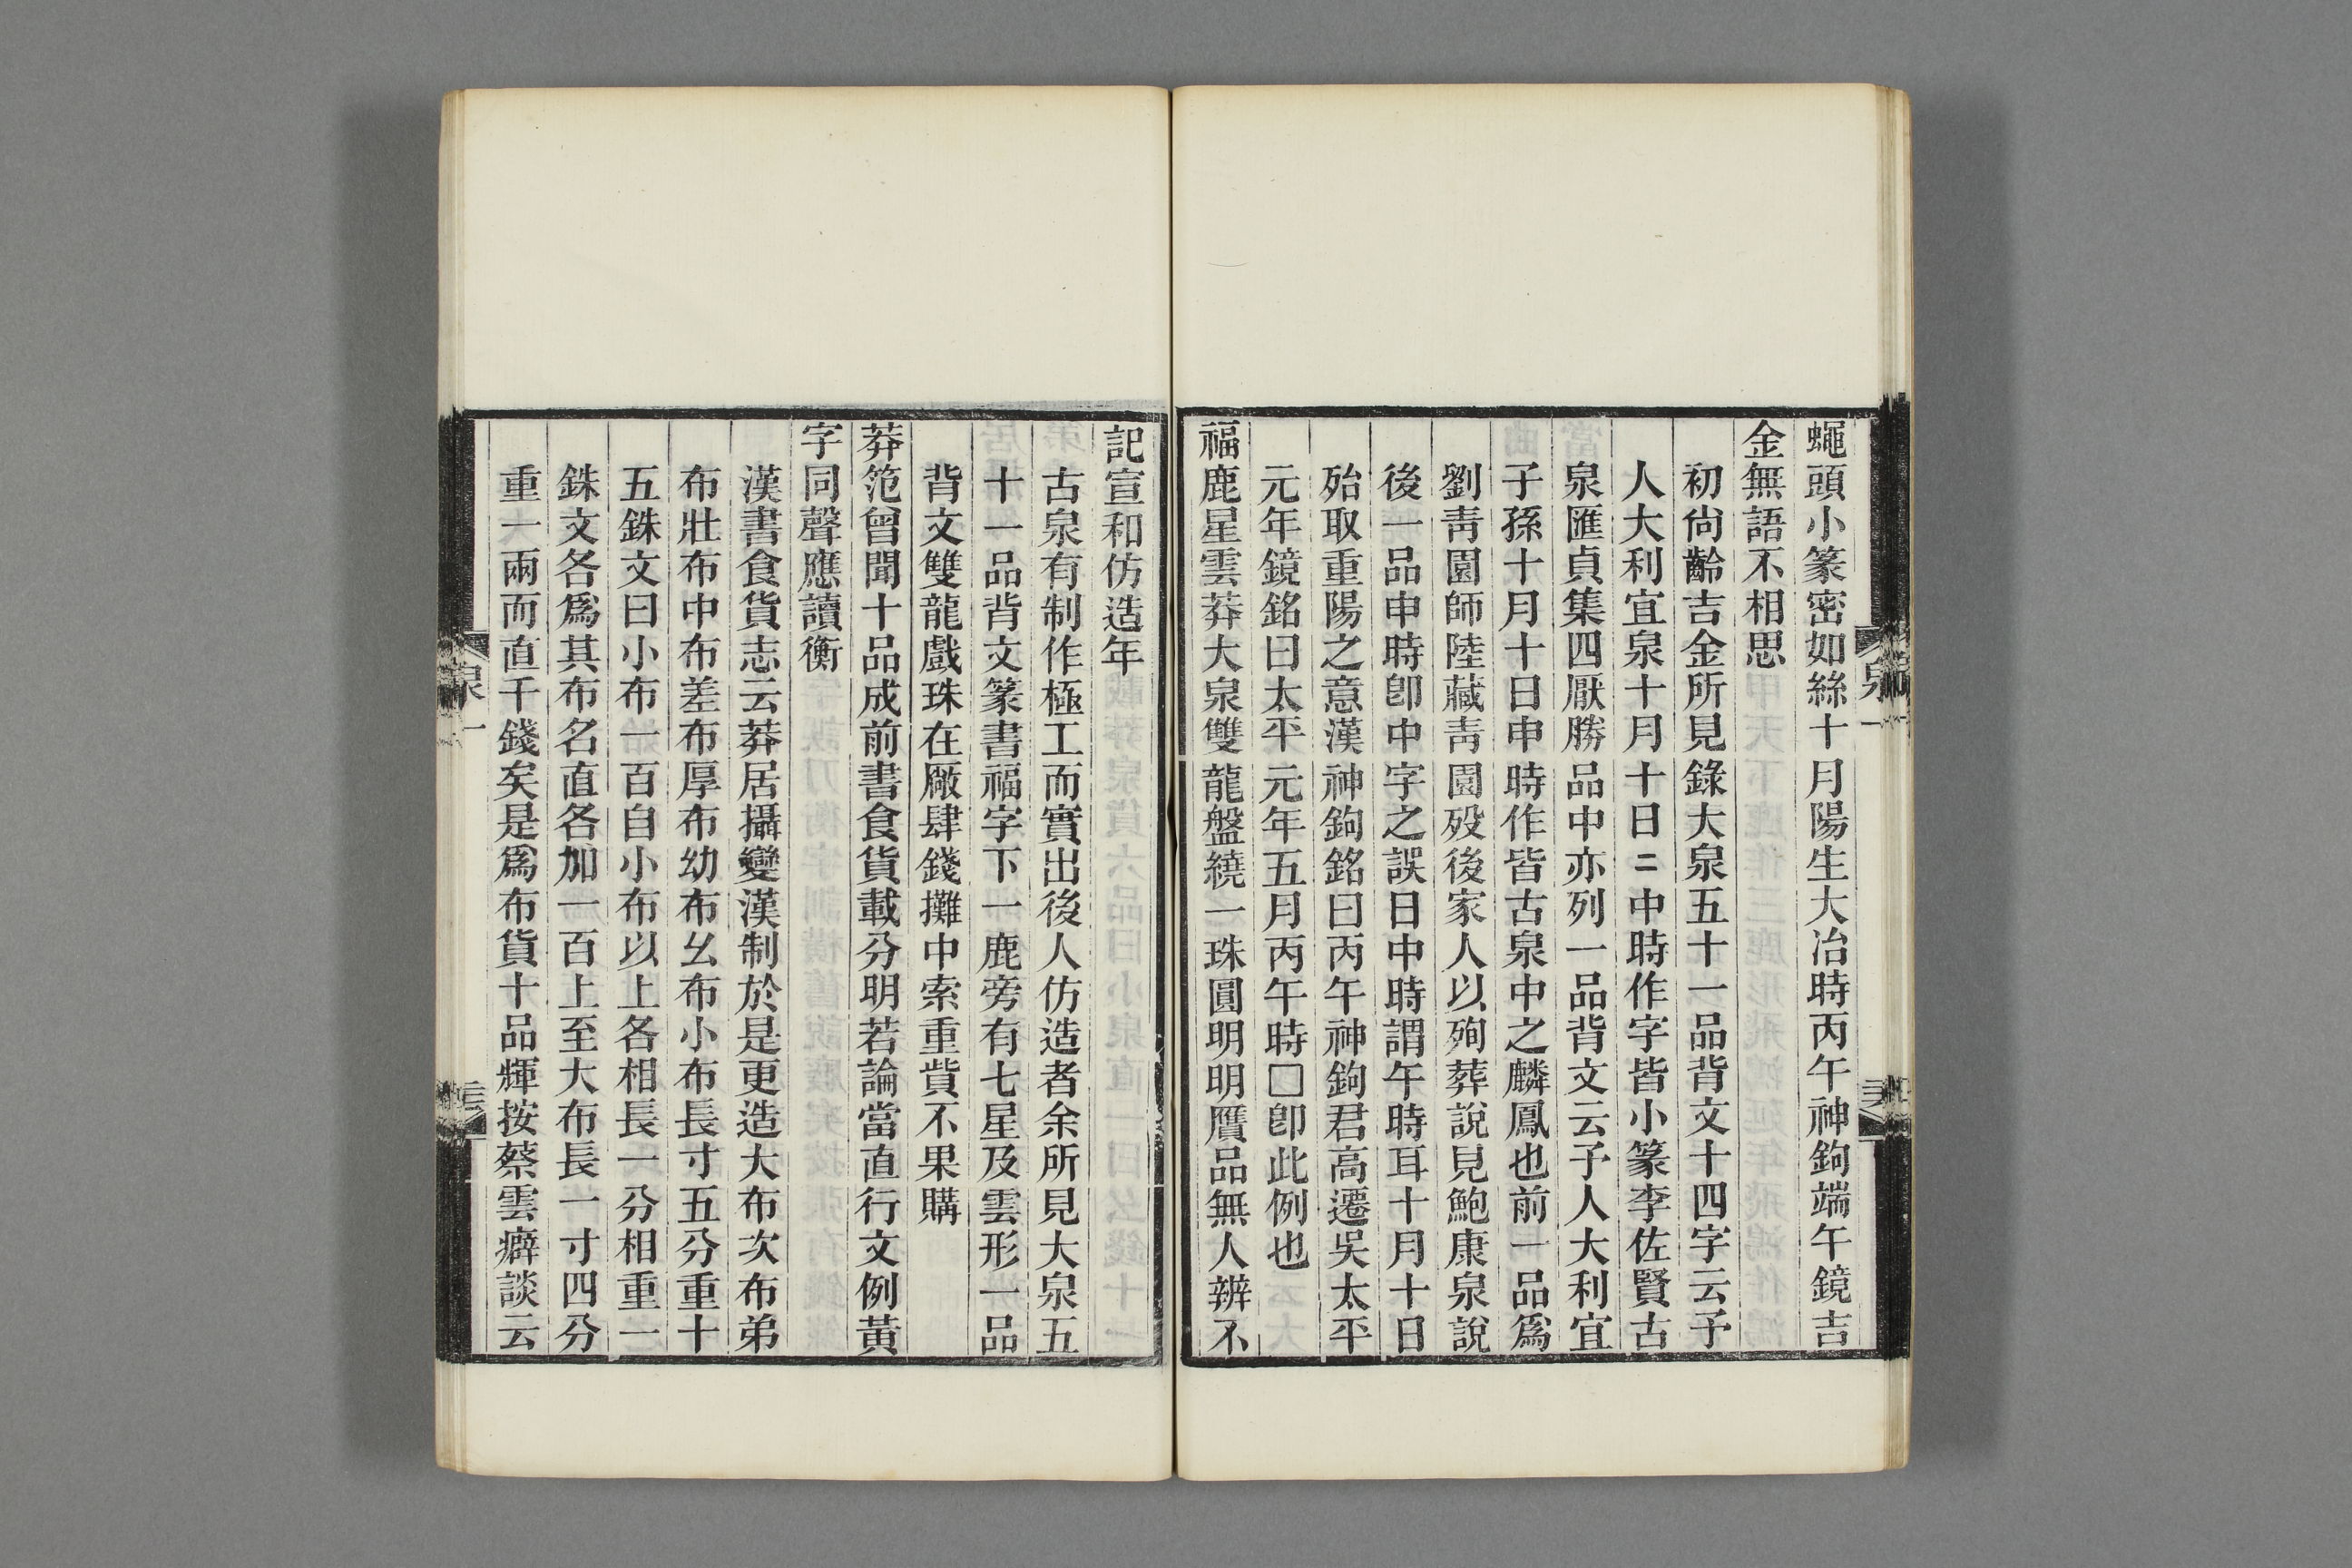 蠅頭小篆密如絲十月陽生大冶時丙午神鉤端午鏡吉
金無語不相思
初尙齡吉金所見錄大泉五十一品背文十四字云予
人大利宜泉十月十日二中時作字皆小篆李佐賢古
泉匯貞集四厭勝品中亦列一品背文云子人大利宜
子孫十月十日申時作皆古泉中之麟鳳也前一品爲
劉靑園師陸藏靑園歿後家人以殉葬說見鮑康泉說
後一品申時卽中字之誤日中時謂午時耳十月十日
殆取重陽之意漢神鉤銘曰丙午神鉤君高遷吳太平
元年鏡銘曰太平元年五月丙午時□卽此例也
福鹿星雲莽大泉雙龍盤繞一珠圓明明贋品無人辨不
記宣和仿造年
古泉有制作極工而實出後人仿造者余所見大泉五
十一品背文篆書福字下一鹿旁有七星及雲形一品
背文雙龍戲珠在厰肆錢攤中索重貲不果購
莽笵曾聞十品成前書食貨載分明若論當直行文例黃
字同聲應讀衡
漢書食貨志云莽居攝變漢制於是更造大布次布弟
布壯布中布差布厚布幼布幺布小布長寸五分重十
五銖文曰小布一百自小布以上各相長一分相重一
銖文各爲其布名直各加一百上至大布長一寸四分
重一兩而直千錢矣是爲布貨十品輝按蔡雲癖談云
泉一